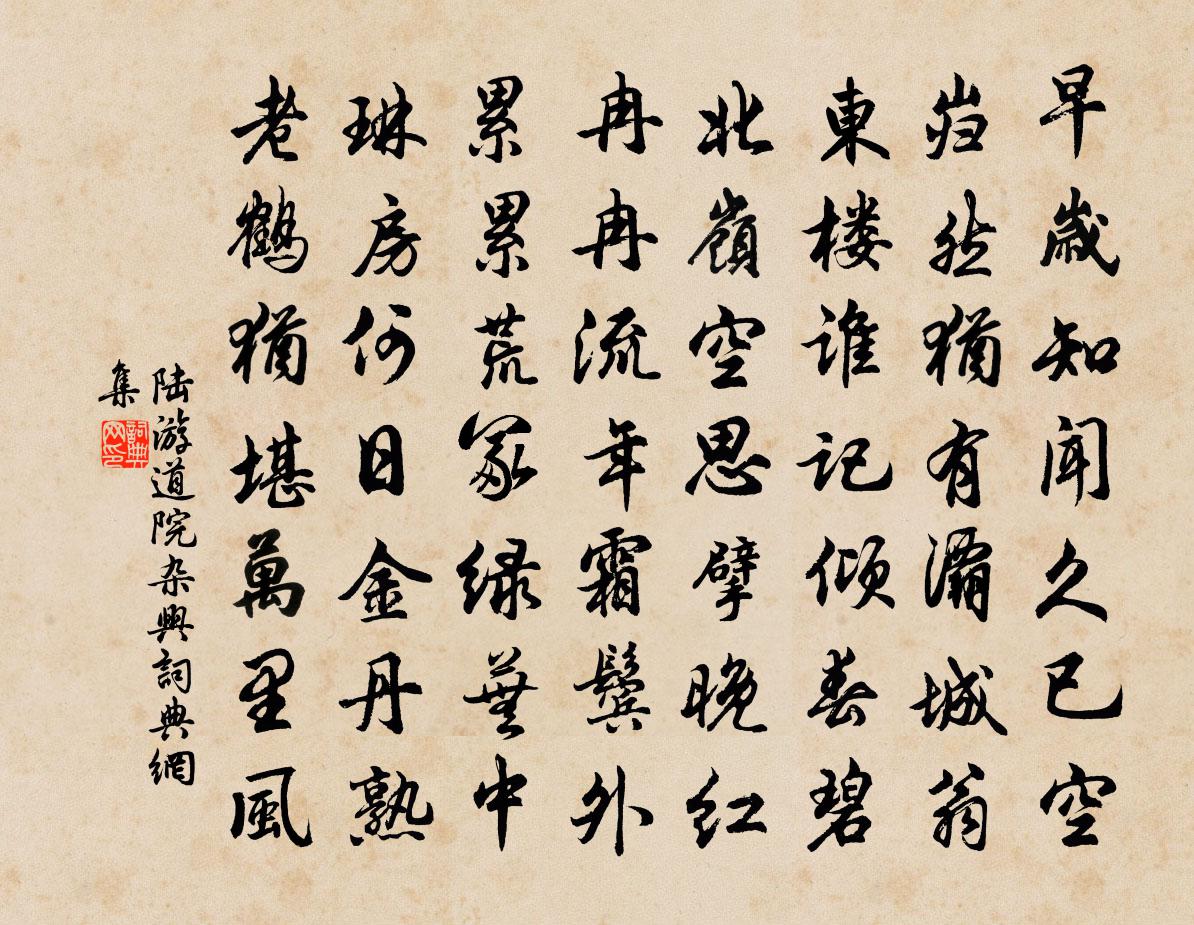 早歲知聞久已空
岿然猶有灞城翁
東楼誰記倾春碧
北嶺空思擘晚红
冉冉流年霜鬓外
累累荒冢绿蕪中
琳房何日金丹熟
老鶴猶堪萬里風
陆游道院杂興詞典網
集
詞典网印